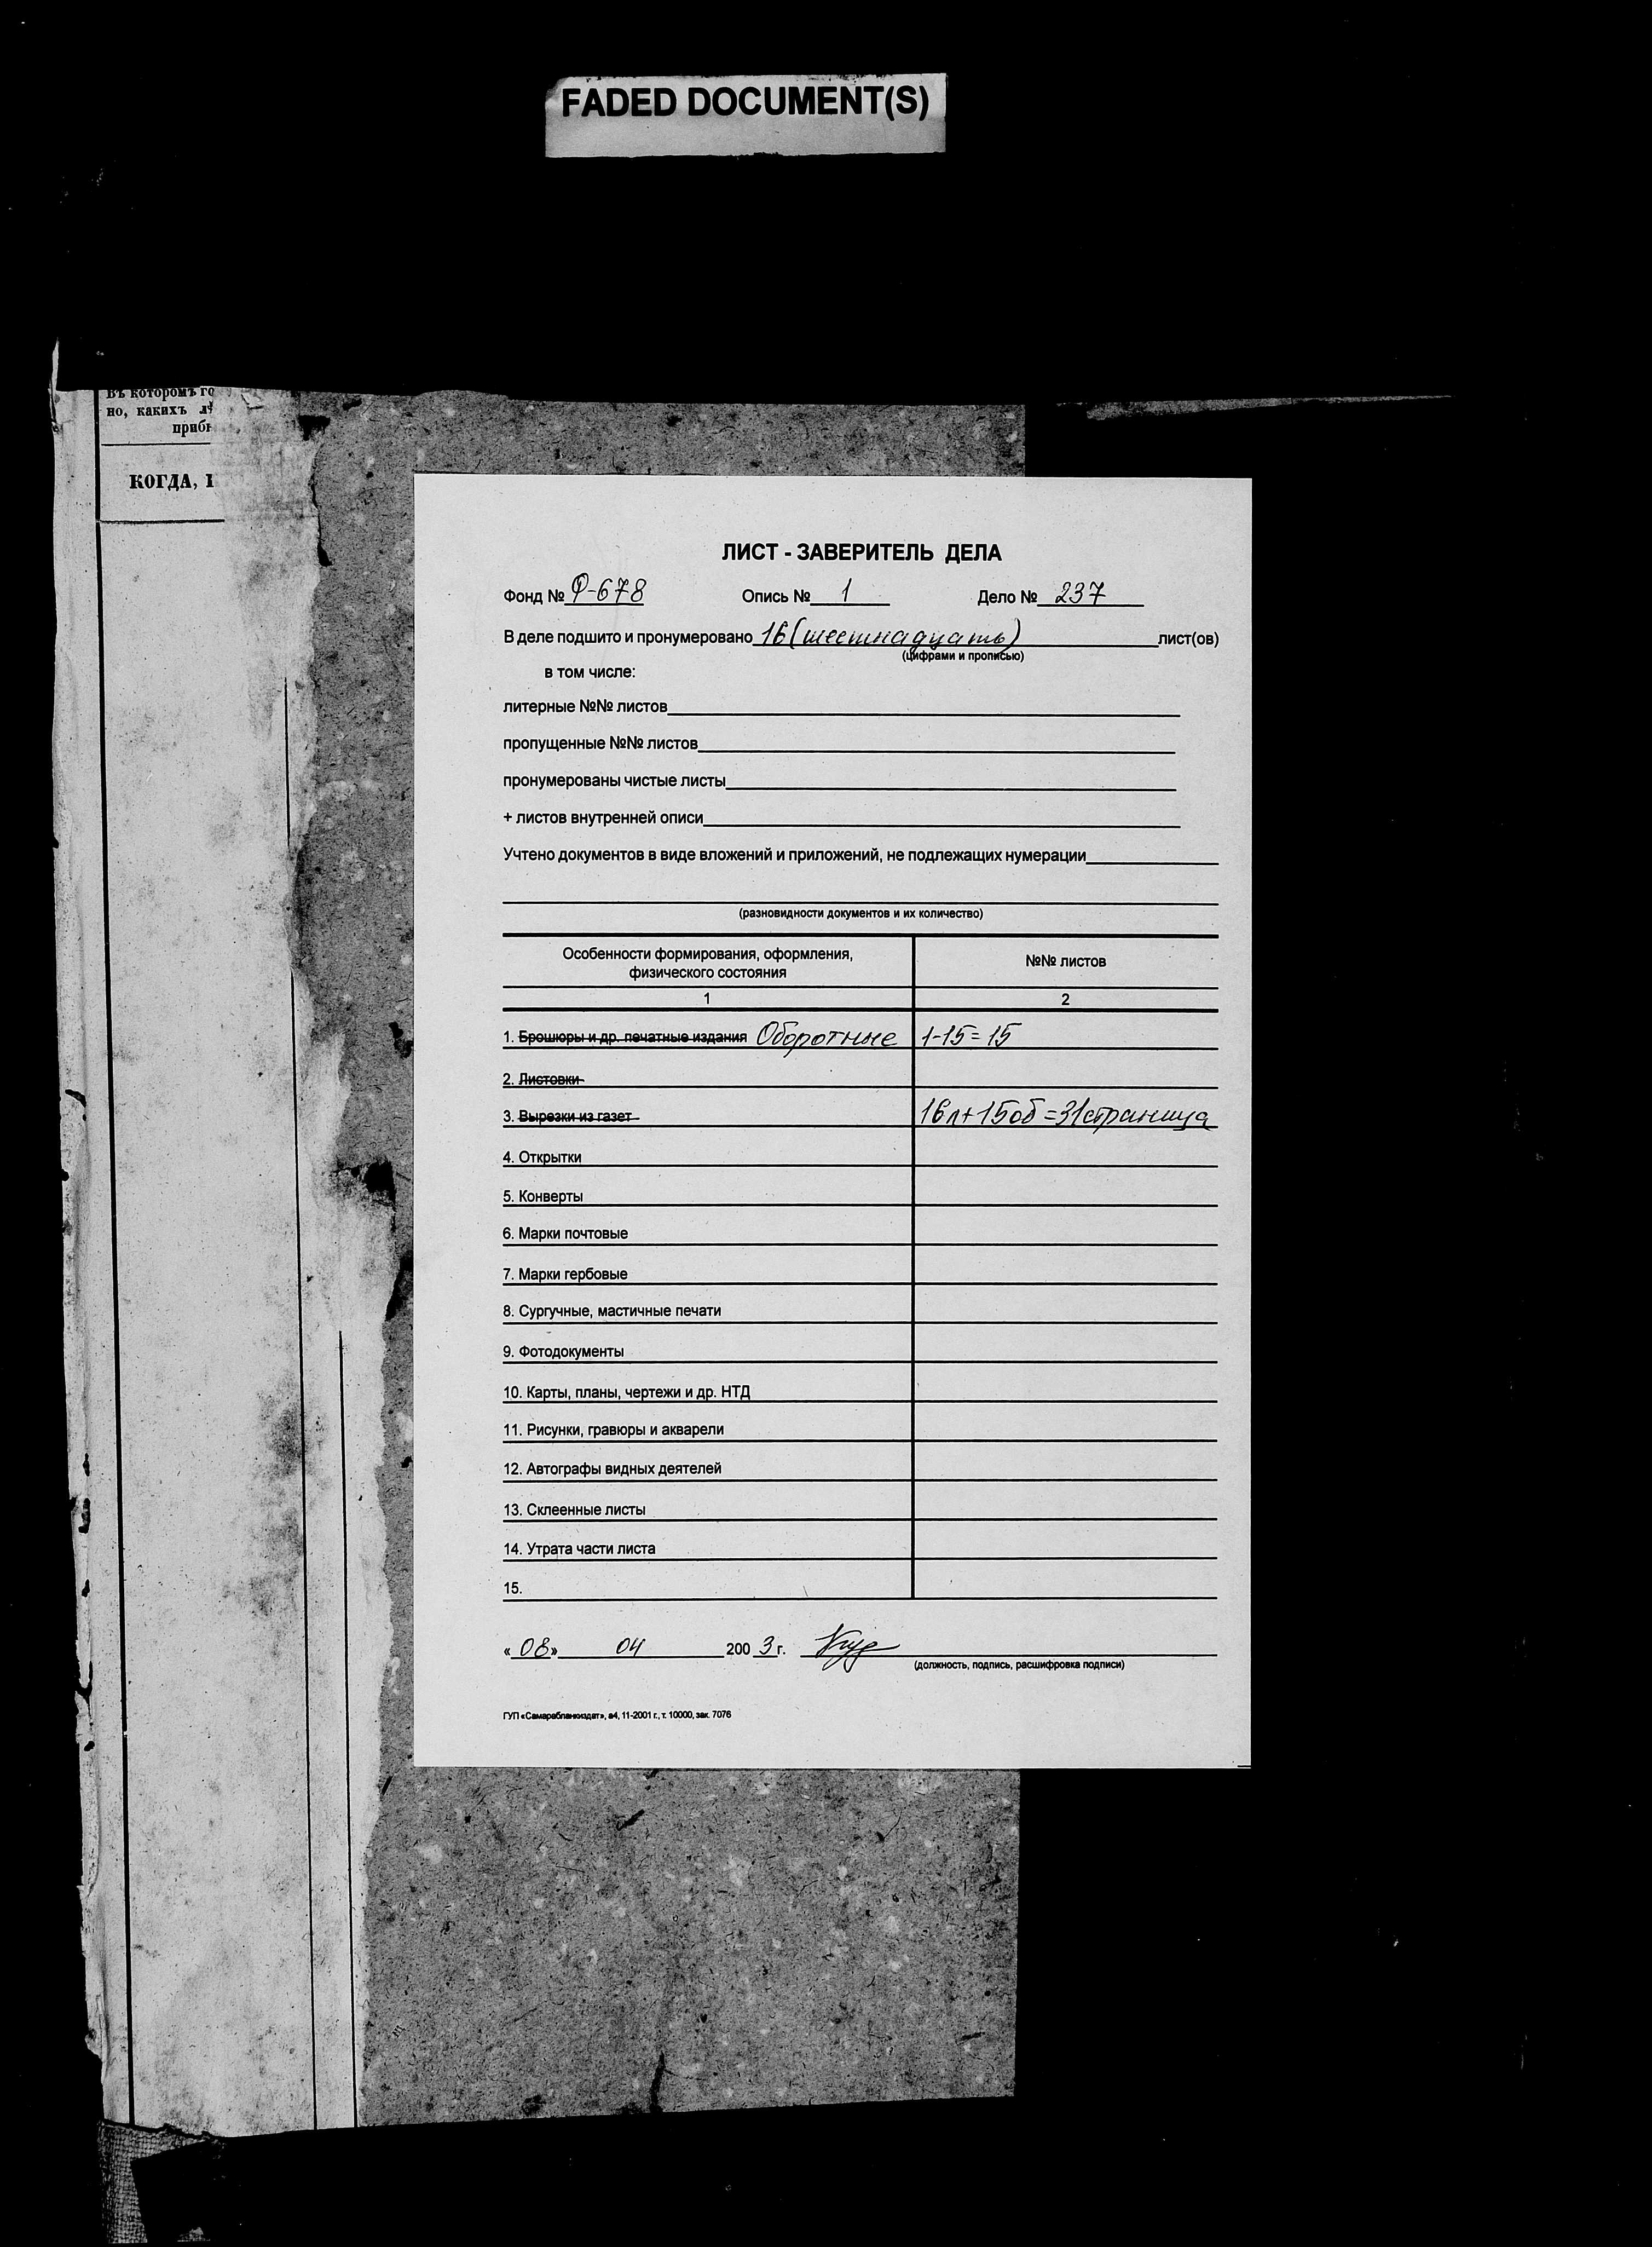 FADED DOCUMENT(S)
въ которомъ го
но, какихъ лѣ
прибы
КОГДА,
ЛИСТ - ЗАВЕРИТЕЛЬ ДЕЛА
Фонд № Ф-678 Опись № 1 Дело № 237
В деле подшито и пронумеровано 16 (шестнадцать) лист(ов)
(цифрами и прописью)
в том числе:
литерные №№ листов
пропущенные №№ листов
пронумерованы чистые листы
+ листов внутренней описи
Учтено документов в виде вложений и приложений, не подлежащих нумерации
(разновидности документов и их количество)
Особенности формирования, оформления, №№ листов
физического состояния
1 2
1. Брошюры и др. печатные издания Оборотные 1-15=15
2. Листовки
3. Вырезки из газет 16л+15об=31страница
4. Открытки
5. Конверты
6. Марки почтовые
7. Марки гербовые
8. Сургучные, мастичные печати
9. Фотодокументы
10. Карты, планы, чертежи и др. НТД
11. Рисунки, гравюры и акварели
12. Автографы видных деятелей
13. Склеенные листы
14. Утрата части листа
15.
«08» 04 2003 г.
(должность, подпись, расшифровка подписи)
ГУП «Самарабланкиздат», а4, 11-2001 г., т. 10000, зак. 7076